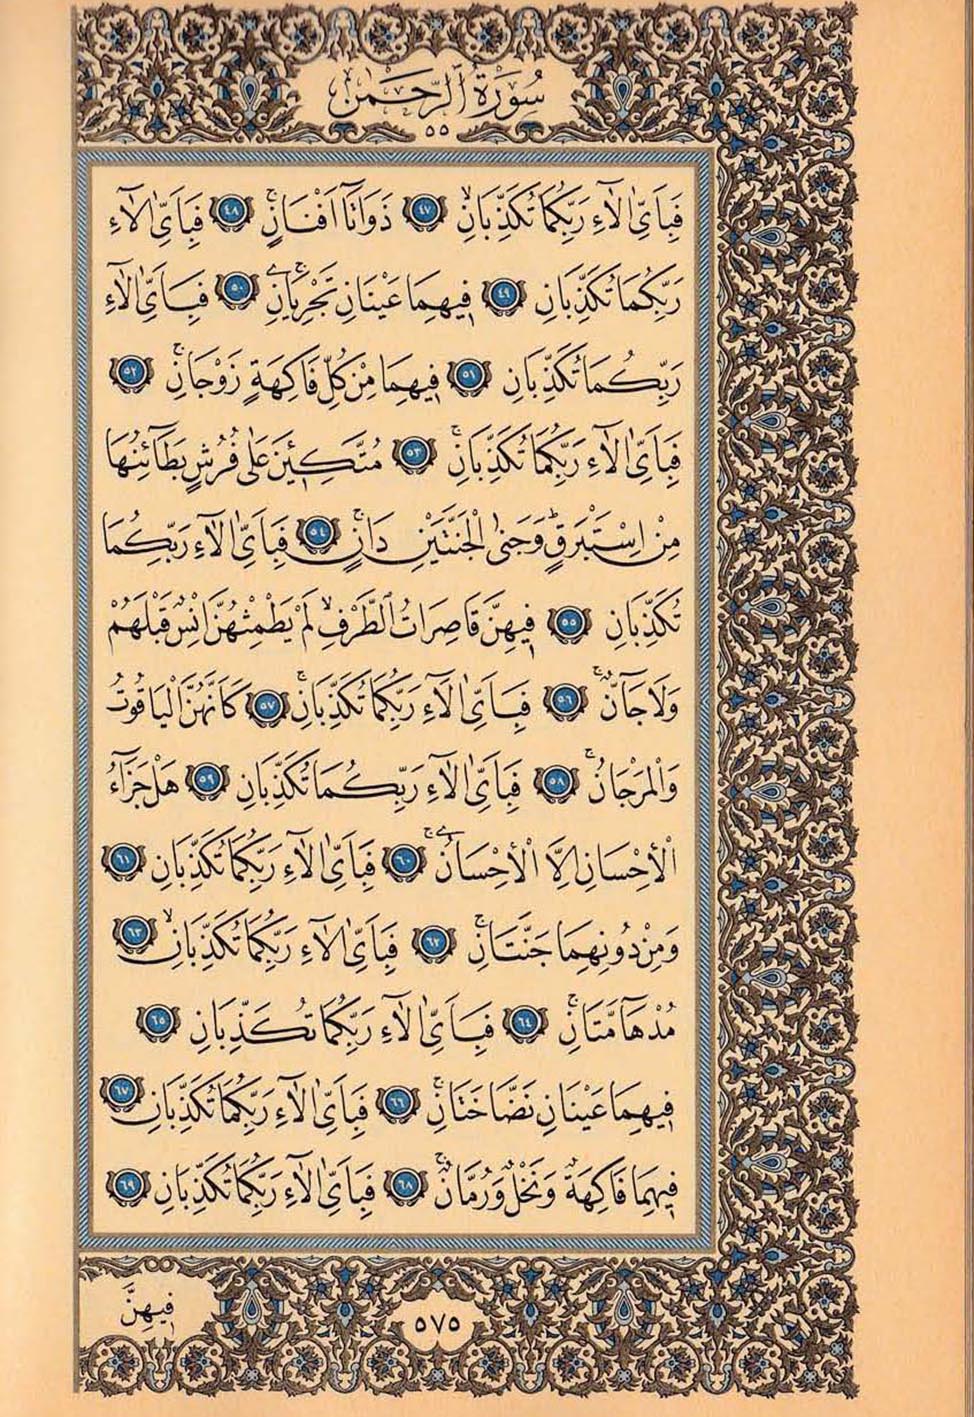 سُورَةُ الرَّحْمٰنِ
٥٥
فَبِاَيِّ اٰلَٓاءِ رَبِّكُمَا تُكَذِّبَانِۙ ٤٧ ذَوَاتَٓا اَفْنَانٍۚ ٤٨ فَبِاَيِّ اٰلَٓاءِ
رَبِّكُمَا تُكَذِّبَانِ ٤٩ ف۪يهِمَا عَيْنَانِ تَجْرِيَانِۚ ٥٠ فَبِاَيِّ اٰلَٓاءِ
رَبِّكُمَا تُكَذِّبَانِ ٥١ ف۪يهِمَا مِنْ كُلِّ فَاكِهَةٍ زَوْجَانِۚ ٥٢
فَبِاَيِّ اٰلَٓاءِ رَبِّكُمَا تُكَذِّبَانِۚ ٥٣ مُتَّكِـ۪ٔينَ عَلٰى فُرُشٍ بَطَٓائِنُهَا
مِنْ اِسْتَبْرَقٍۜ وَجَنَا الْجَنَّتَيْنِ دَانٍۚ ٥٤ فَبِاَيِّ اٰلَٓاءِ رَبِّكُمَا
تُكَذِّبَانِ ٥٥ ف۪يهِنَّ قَاصِرَاتُ الطَّرْفِۙ لَمْ يَطْمِثْهُنَّ اِنْسٌ قَبْلَهُمْ
وَلَا جَٓانٌّۚ ٥٦ فَبِاَيِّ اٰلَٓاءِ رَبِّكُمَا تُكَذِّبَانِۚ ٥٧ كَاَنَّهُنَّ الْيَاقُوتُ
وَالْمَرْجَانُۚ ٥٨ فَبِاَيِّ اٰلَٓاءِ رَبِّكُمَا تُكَذِّبَانِ ٥٩ هَلْ جَزَٓاءُ
الْاِحْسَانِ اِلَّا الْاِحْسَانُۚ ٦٠ فَبِاَيِّ اٰلَٓاءِ رَبِّكُمَا تُكَذِّبَانِ ٦١
وَمِنْ دُونِهِمَا جَنَّتَانِۚ ٦٢ فَبِاَيِّ اٰلَٓاءِ رَبِّكُمَا تُكَذِّبَانِۙ ٦٣
مُدْهَٓامَّتَانِۚ ٦٤ فَبِاَيِّ اٰلَٓاءِ رَبِّكُمَا تُكَذِّبَانِ ٦٥
ف۪يهِمَا عَيْنَانِ نَضَّاخَتَانِۚ ٦٦ فَبِاَيِّ اٰلَٓاءِ رَبِّكُمَا تُكَذِّبَانِ ٦٧
ف۪يهِمَا فَاكِهَةٌ وَنَخْلٌ وَرُمَّانٌۚ ٦٨ فَبِاَيِّ اٰلَٓاءِ رَبِّكُمَا تُكَذِّبَانِ ٦٩
ف۪يهِنَّ
٥٧٥